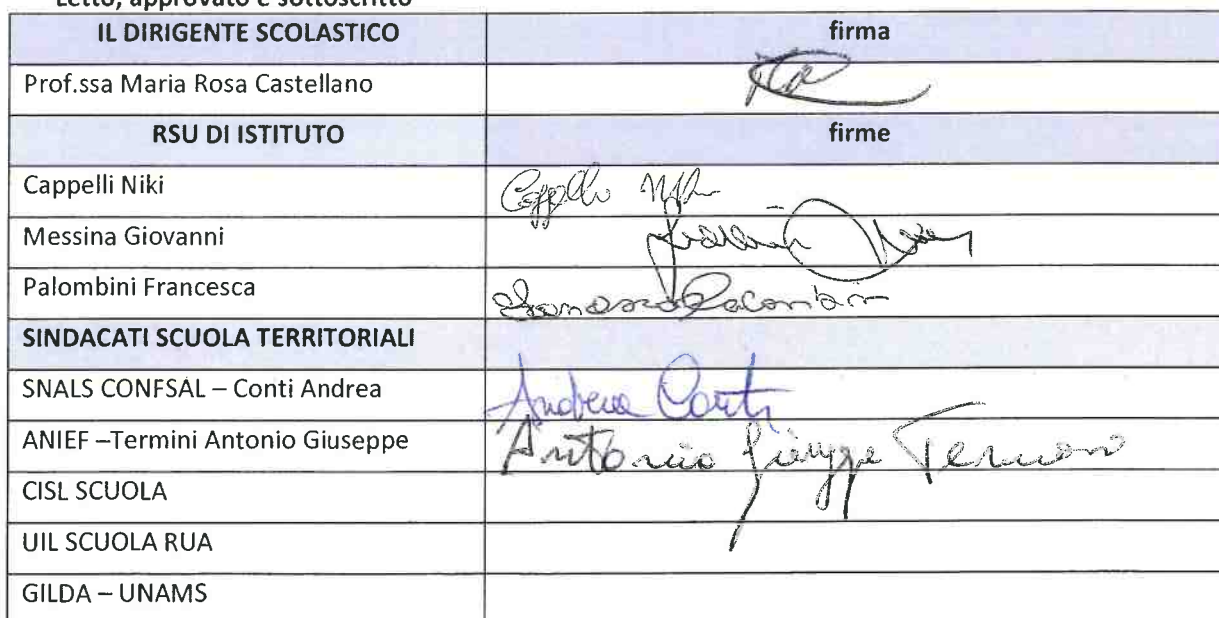 Letto, approvato e sottoscritto
IL DIRIGENTE SCOLASTICO firma
Prof.ssa Maria Rosa Castellano
RSU DI ISTITUTO firme
Cappelli Niki
Messina Giovanni
Palombini Francesca Francesca Palombini
SINDACATI SCUOLA TERRITORIALI
SNALS CONFSAL – Conti Andrea Andrea Conti
ANIEF –Termini Antonio Giuseppe Antonio Giuseppe
CISL SCUOLA
UIL SCUOLA RUA
GILDA – UNAMS